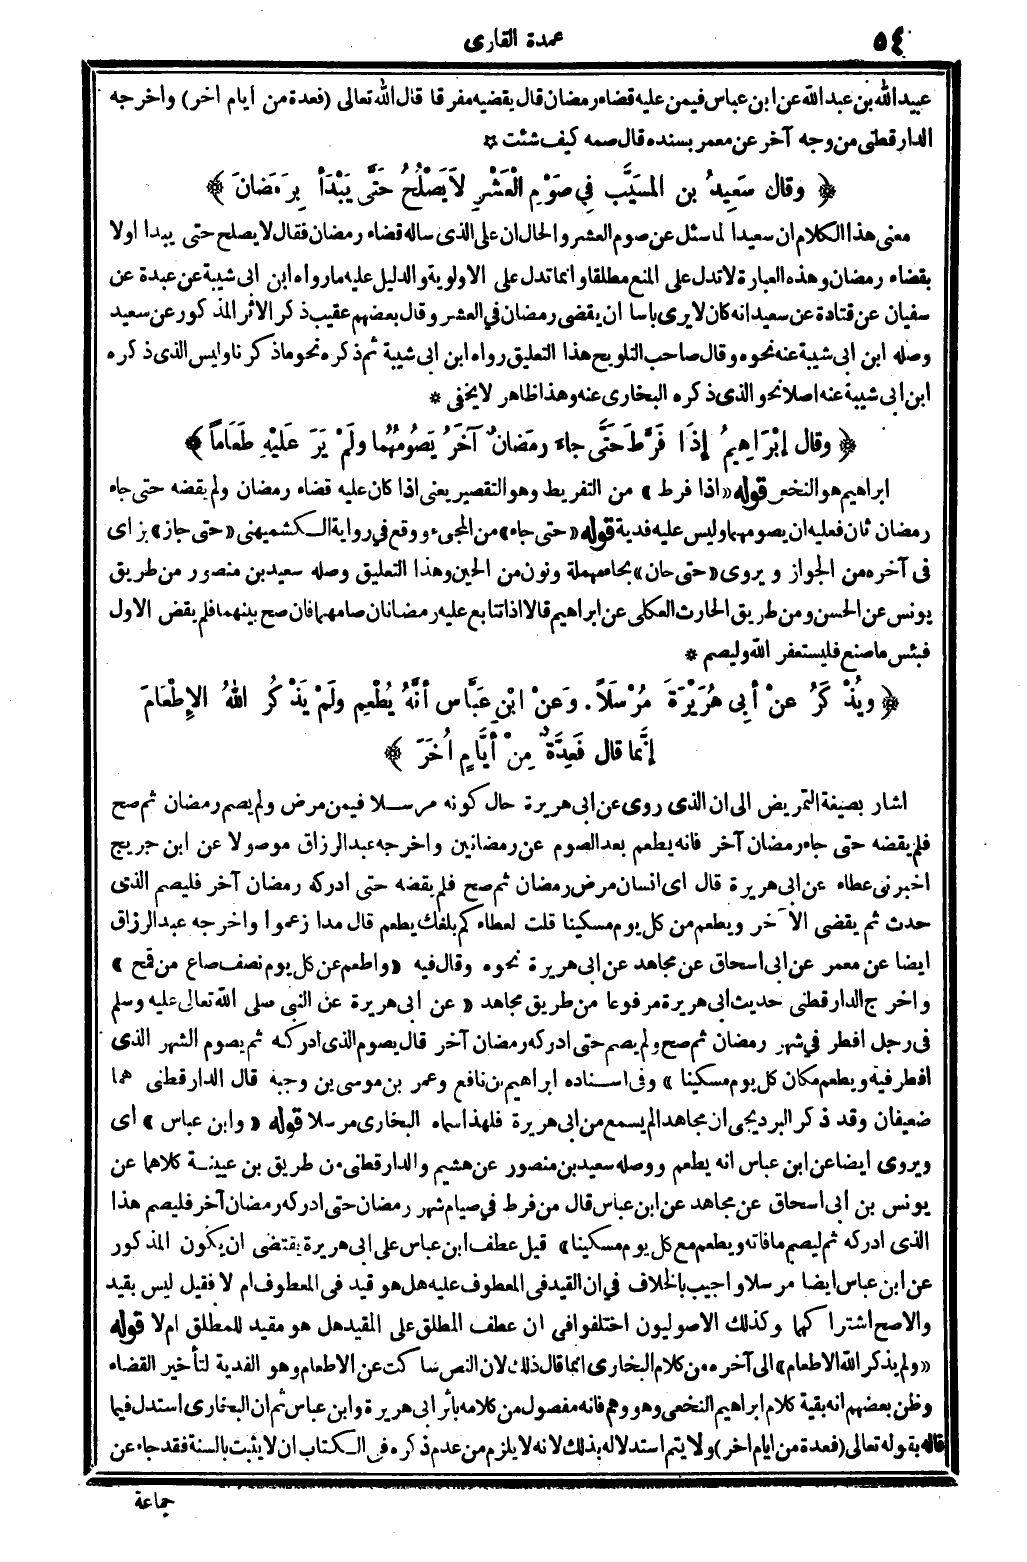 ٥٤
عمدة القارى
عبيد الله بن عبد الله عن ابن عباس فيمن عليه قضاء رمضان قال يقضيه مفرقا قال الله تعالى (فعدة من أيام أخر) واخرجه
الدارقطنى من وجه آخر عن معمر بسنده قال صمه كيف شئت *
﴿ وقال سَعِيدُ بن المسَيَّب فِي صَوْمِ الْعَشْرِ لاَ يَصْلُحُ حَتَّى يَبْدَأَ بِرَمَضَانَ ﴾
معنى هذا الكلام ان سعيدا لما سئل عن صوم العشر والحال ان على الذى ساله قضاء رمضان فقال لا يصلح حتى يبدا اولا
بقضاء رمضان وهذه العبارة لا تدل على المنع مطلقا وانما تدل على الاولوية والدليل عليه ما رواه ابن ابى شيبة عن عبدة عن
سفيان عن قتادة عن سعيد انه كان لا يرى باسا ان يقضى رمضان في العشر وقال بعضهم عقيب ذكر الاثر المذكور عن سعيد
وصله ابن ابى شيبة عنه نحوه وقال صاحب التلويح هذا التعليق رواه ابن ابى شيبة ثم ذكره نحو ما ذكرنا وليس الذى ذكره
ابن ابى شيبة عنه اصلا نحو الذى ذكره البخارى عنه وهذا ظاهر لا يخفى *
﴿ وقال إبْرَاهِيمُ إذَا فَرَّطَ حَتَّى جاءَ رمَضَانٌ آخَرُ يَصُومُهُما ولَمْ يَرَ عَلَيْهِ طَعَاماً ﴾
ابراهيم هو النخعى قوله «اذا فرط» من التفريط وهو التقصير يعنى اذا كان عليه قضاء رمضان ولم يقضه حتى جاء
رمضان ثان فعليه ان يصومهما وليس عليه فدية قوله «حتى جاء» من المجىء ووقع في رواية الكشميهنى «حتى جاز» بزاى
فى آخره من الجواز ويروى «حتى حان» بحاء مهملة ونون من الحين وهذا التعليق وصله سعيد بن منصور من طريق
يونس عن الحسن ومن طريق الحارث العكلى عن ابراهيم قالا اذا تتابع عليه رمضانان صامهما فان صح بينهما فلم يقض الاول
فبئس ما صنع فليستغفر الله وليصم *
﴿ ويُذْكَرُ عنْ أبِى هُرَيْرَةَ مُرْسَلاً. وَعنْ ابْنِ عَبَّاسٍ أنَّهُ يُطْعِمُ ولَمْ يَذْكُرِ اللهُ الإطْعَامَ
إنَّما قال فَعِدَّةٌ مِنْ أيَّامٍ أُخَرَ ﴾
اشار بصيغة التمريض الى ان الذى روى عن ابى هريرة حال كونه مرسلا فيمن مرض ولم يصم رمضان ثم صح
فلم يقضه حتى جاء رمضان آخر فانه يطعم بعد الصوم عن رمضانين واخرجه عبد الرزاق موصولا عن ابن جريج
اخبرنى عطاء عن ابى هريرة قال اى انسان مرض رمضان ثم صح فلم يقضه حتى ادركه رمضان آخر فليصم الذى
حدث ثم يقضى الآخر ويطعم من كل يوم مسكينا قلت لعطاء كم بلغك يطعم قال مدا زعموا واخرجه عبد الرزاق
ايضا عن معمر عن ابى اسحاق عن مجاهد عن ابى هريرة نحوه وقال فيه «واطعم عن كل يوم نصف صاع من قمح»
واخرج الدارقطنى حديث ابى هريرة مرفوعا من طريق مجاهد «عن ابى هريرة عن النبى صلى الله تعالى عليه وسلم
فى رجل افطر في شهر رمضان ثم صح ولم يصم حتى ادركه رمضان آخر قال يصوم الذى ادركه ثم يصوم الشهر الذى
افطر فيه ويطعم مكان كل يوم مسكينا» وفى اسناده ابراهيم بن نافع وعمر بن موسى بن وجيه قال الدارقطنى هما
ضعيفان وقد ذكر البرديجى ان مجاهدا لم يسمع من ابى هريرة فلهذا سماه البخارى مرسلا قوله «وابن عباس» اى
ويروى ايضا عن ابن عباس انه يطعم ووصله سعيد بن منصور عن هشيم والدارقطنى من طريق بن عيينة كلاهما عن
يونس بن ابى اسحاق عن مجاهد عن ابن عباس قال من فرط في صيام شهر رمضان حتى ادركه رمضان آخر فليصم هذا
الذى ادركه ثم ليصم ما فاته ويطعم مع كل يوم مسكينا» قيل عطف ابن عباس على ابى هريرة يقتضى ان يكون المذكور
عن ابن عباس ايضا مرسلا واجيب بالخلاف في ان القيد فى المعطوف عليه هل هو قيد فى المعطوف ام لا فقيل ليس بقيد
والاصح اشتراكهما وكذلك الاصوليون اختلفوا فى ان عطف المطلق على المقيد هل هو مقيد للمطلق ام لا قوله
«ولم يذكر الله الاطعام» الى آخره من كلام البخارى انما قال ذلك لان النص ساكت عن الاطعام وهو الفدية لتأخير القضاء
وظن بعضهم انه بقية كلام ابراهيم النخعى وهو وهم فانه مفصول من كلامه باثر ابى هريرة وابن عباس ثم ان البخارى استدل فيما
قاله بقوله تعالى (فعدة من ايام اخر) ولا يتم استدلاله بذلك لانه لا يلزم من عدم ذكره فى الكتاب ان لا يثبت بالسنة فقد جاء عن
جماعة